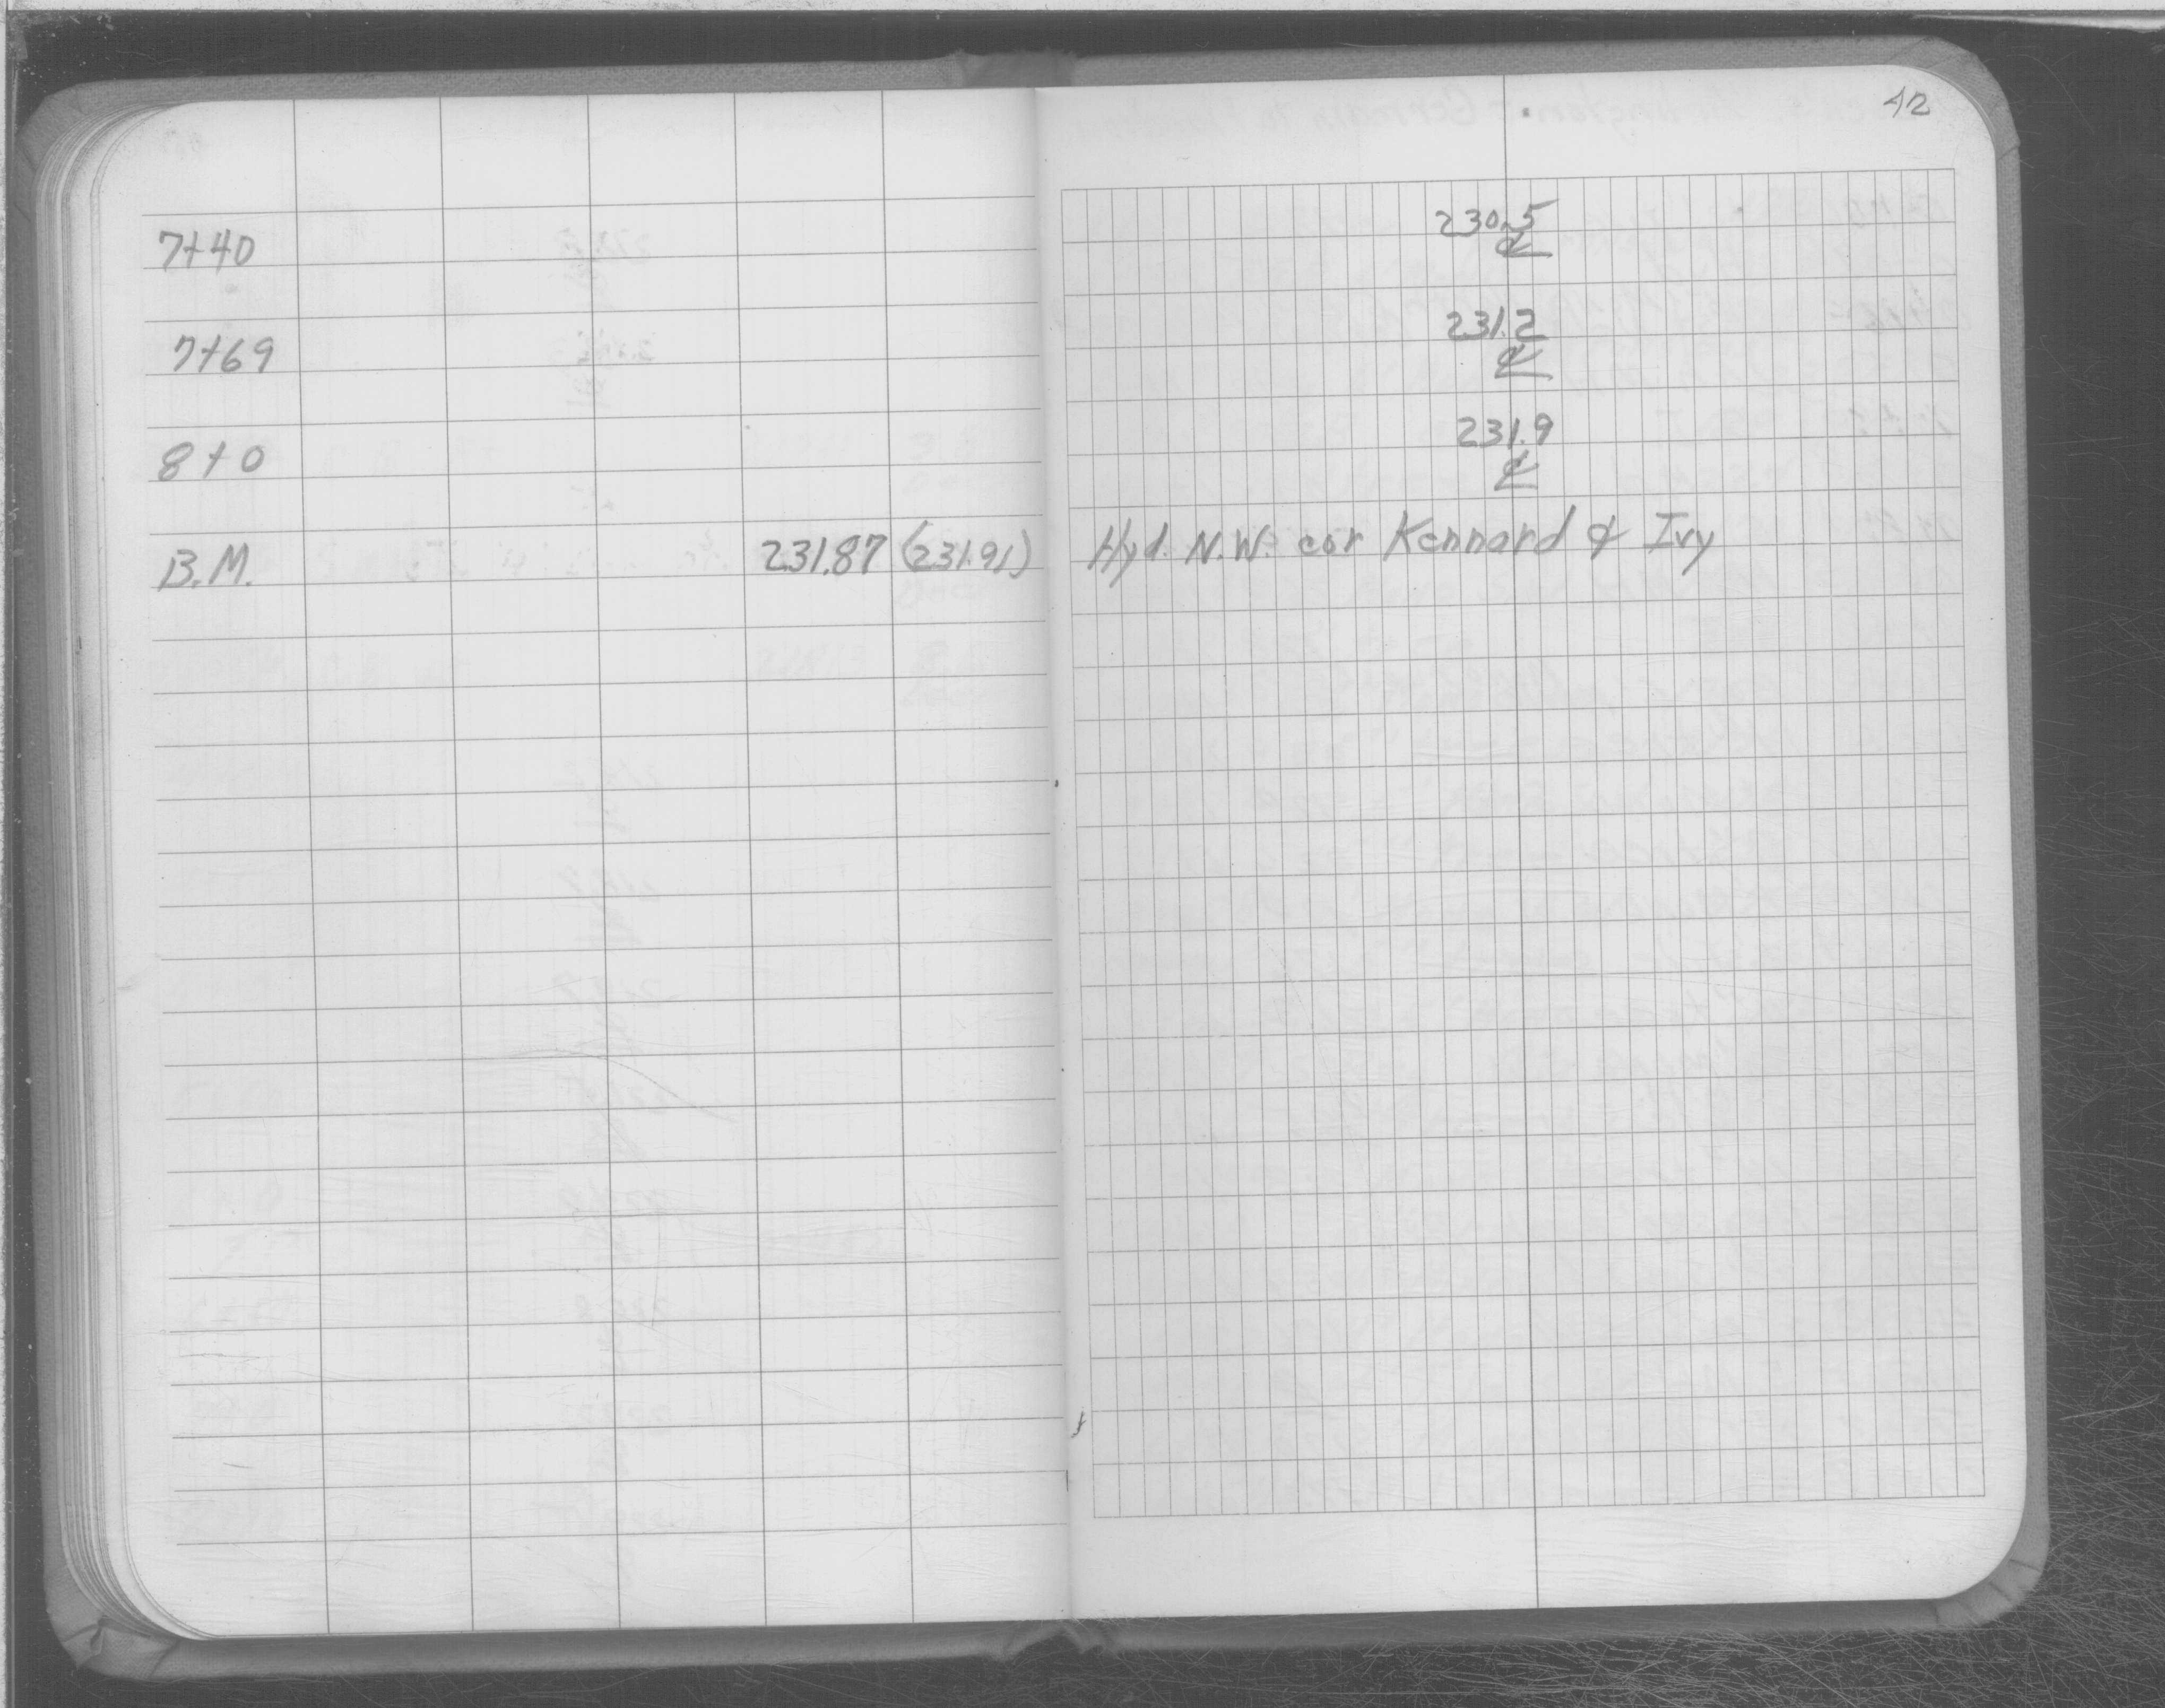 42
7+40 230.5
℄
7+69 231.2
℄
8+0 231.9
℄
B.M. 231.87 (231.91) Hyd. N.W. cor Kennard & Ivy